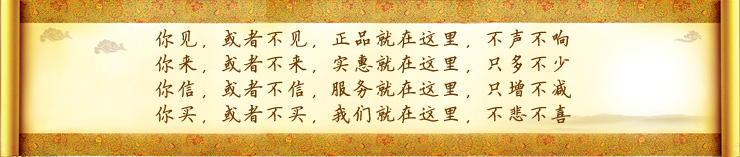 你见，或者不见，正品就在这里，不声不响
你来，或者不来，实惠就在这里，只多不少
你信，或者不信，服务就在这里，只增不减
你买，或者不买，我们就在这里，不悲不喜